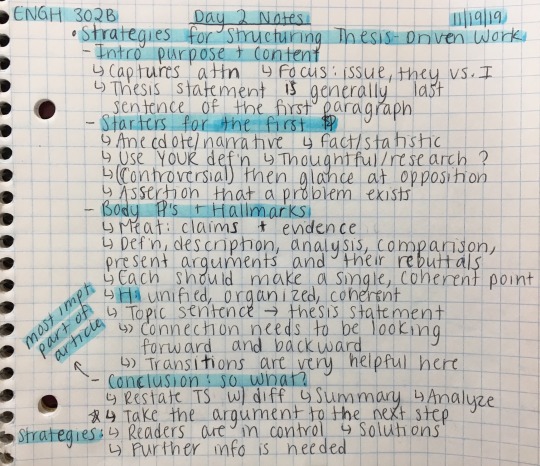 ENGH 302B Day 2 Notes 11/19/19
• Strategies for Structuring Thesis-Driven Work
- Intro purpose + Content
↳ Captures attn ↳ Focus: issue, they vs. I
↳ Thesis statement is generally last
sentence of the first paragraph
- Starters for the first ¶
↳ Anecdote/narrative ↳ Fact/statistic
↳ Use YOUR def'n ↳ Thoughtful/research ?
↳ (Controversial) then glance at opposition
↳ Assertion that a problem exists
- Body ¶'s + Hallmarks
↳ Meat: claims + evidence
↳ Def'n, description, analysis, comparison,
present arguments and their rebuttals
↳ Each should make a single, coherent point
↳ H: unified, organized, coherent
↳ Topic sentence → thesis statement
↳ Connection needs to be looking
forward and backward
↳ Transitions are very helpful here
most impt
part of
article
- Conclusion: so what?
↳ Restate TS w/ diff ↳ Summary ↳ Analyze
* ↳ Take the argument to the next step
Strategies: ↳ Readers are in control ↳ Solutions
↳ Further info is needed